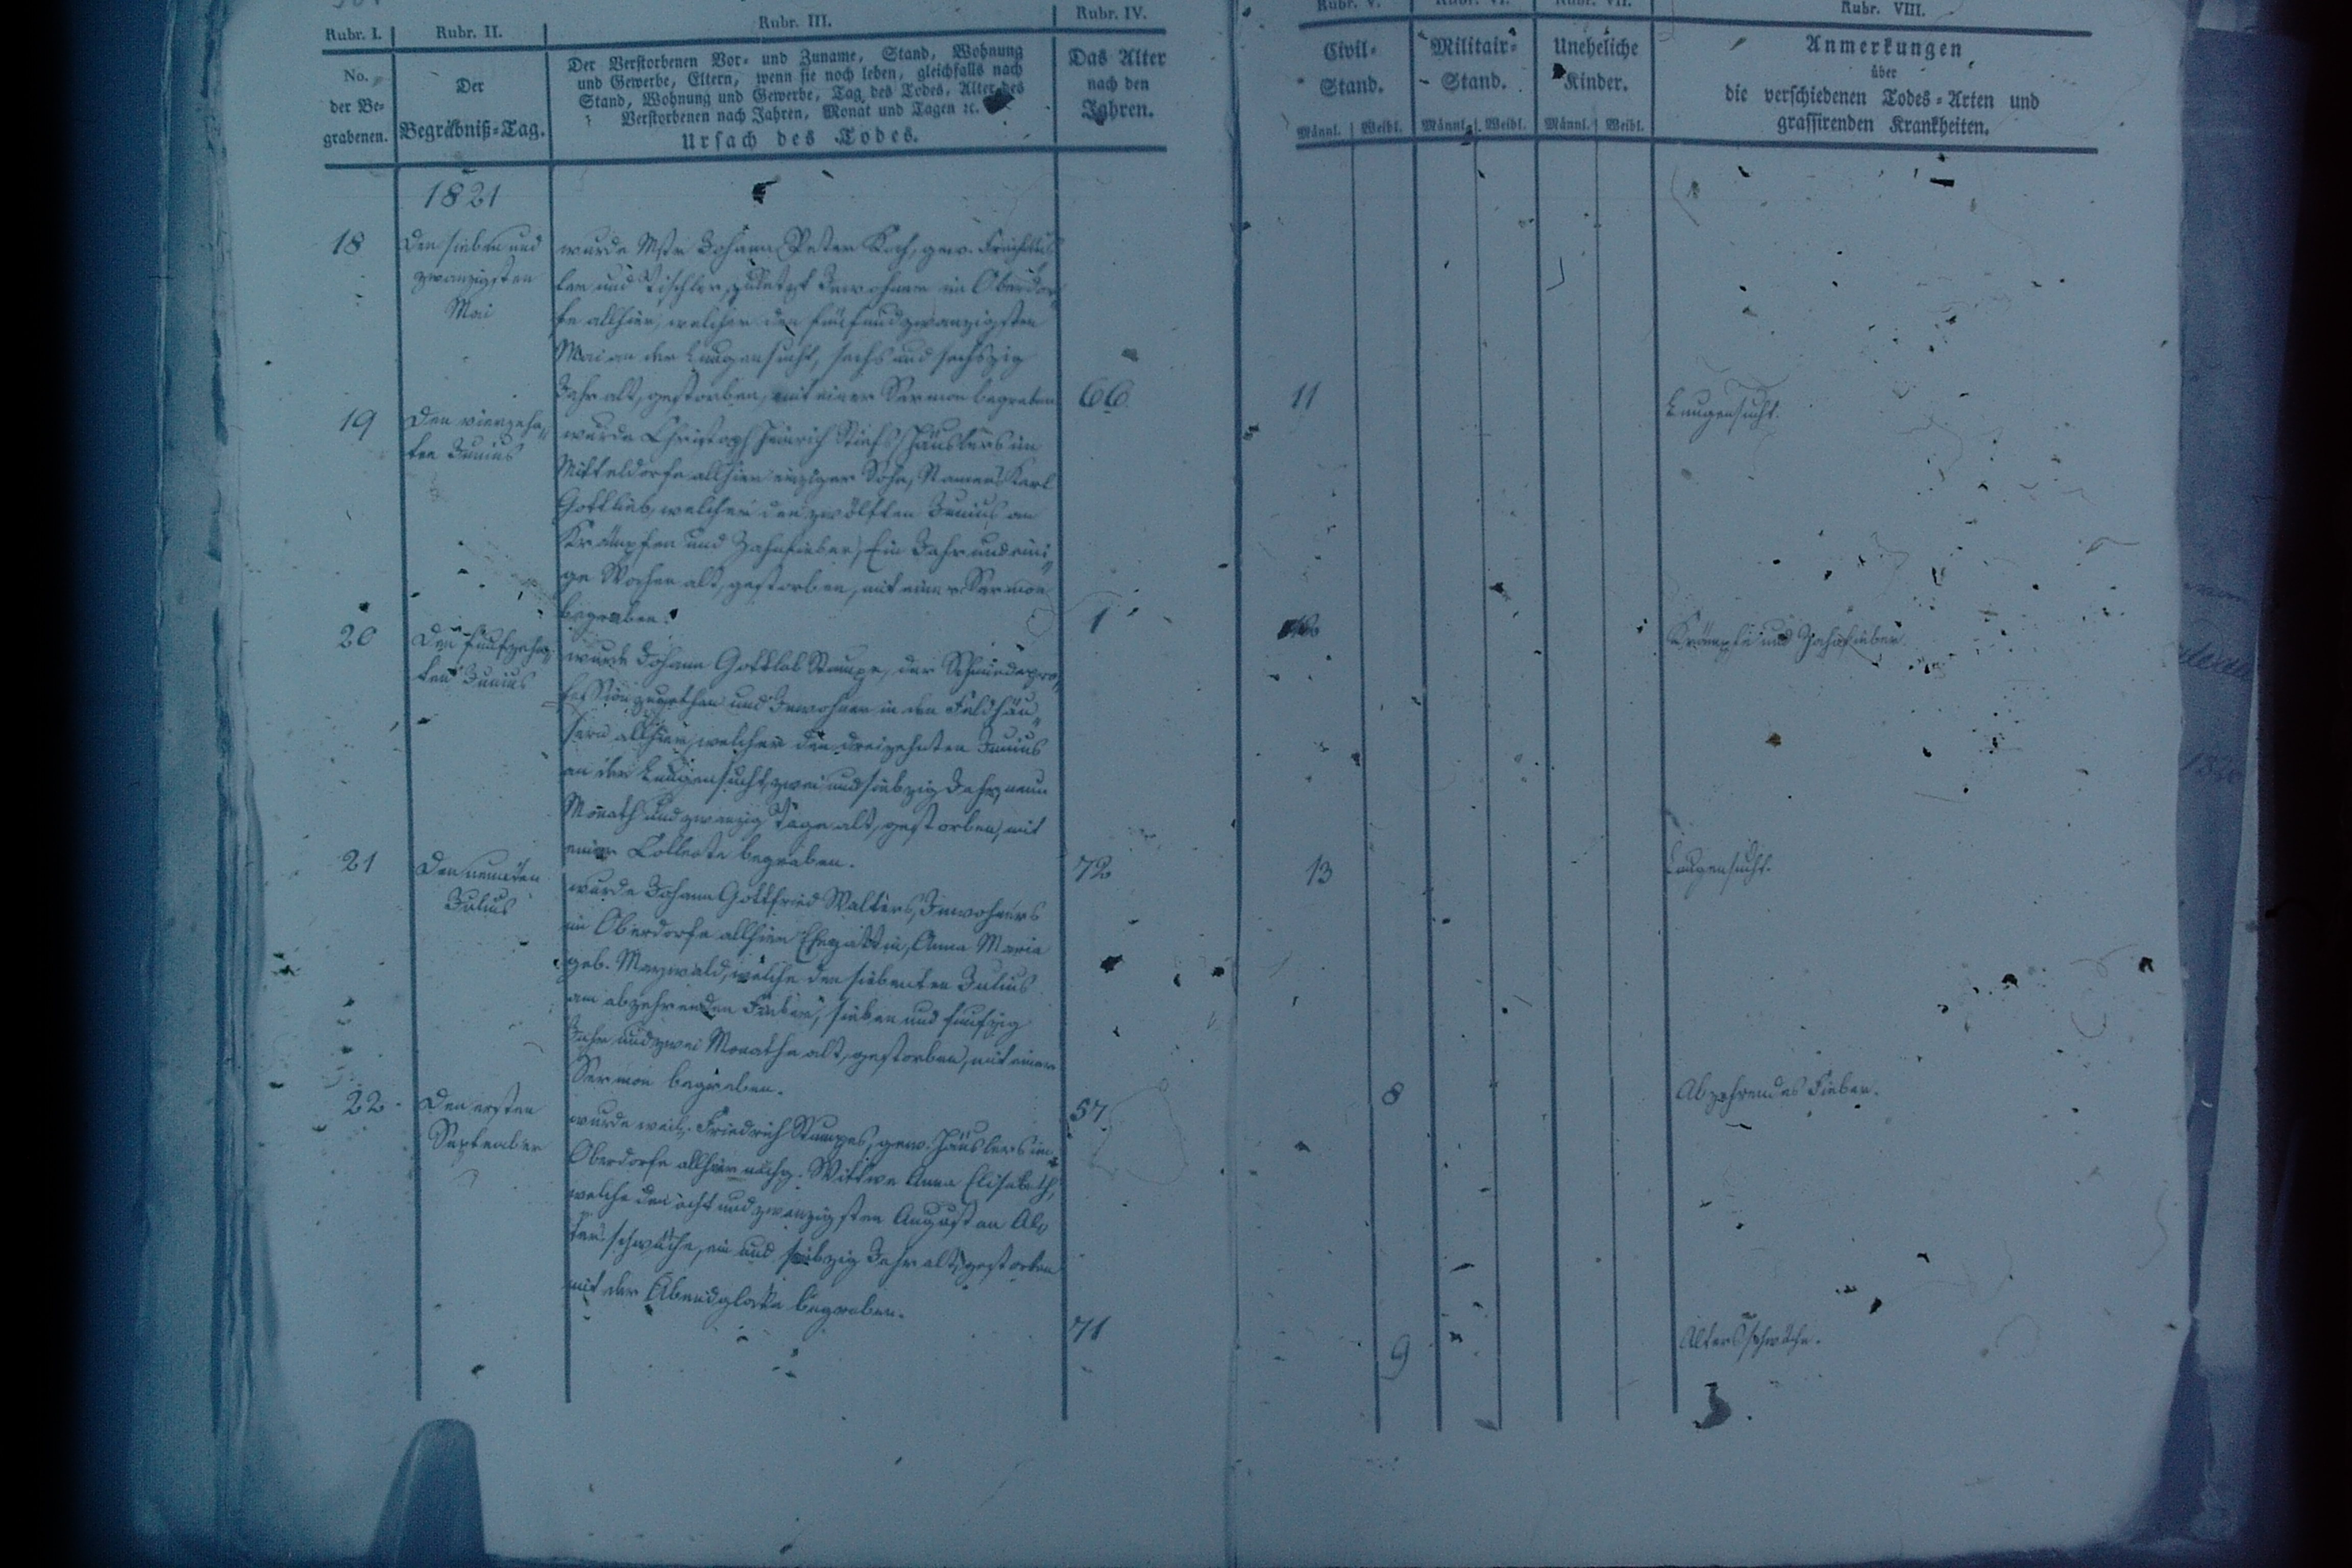 Rubr. I.
No.
der Be-
grabenen.
Rubr. II.
Der
Begräbniß-Tag.
Rubr. III.
Der Verstorbenen Vor- und Zuname, Stand, Wohnung
und Gewerbe, Eltern, wenn sie noch leben, gleichfalls nach
Stand, Wohnung und Gewerbe, Tag des Todes, Alter des
Verstorbenen nach Jahren, Monat und Tagen ꝛc.
Ursach des Todes.
Rubr. IV.
Das Alter
nach den
Jahren.
Rubr. V.
Civil-
Stand.
Männl. Weibl.
Rubr. VI.
Militair-
Stand.
Männl. Weibl.
Rubr. VII.
Uneheliche
Kinder.
Männl. Weibl.
Rubr. VIII.
Anmerkungen
über
die verschiedenen Todes-Arten und
grassirenden Krankheiten.
1821
18
Den sieben und
zwanzigsten
Mai
wurde Mstr Johann Peter Koch, gew. Freihäus
ler und Tischler, zuletzt Inwohner im Oberdor
fe allhier, welcher den fünfundzwanzigsten
Mai an der Lungensucht, sechs und sechszig
Jahr alt, gestorben, mit einer Sermon begraben
66
11
Lungensucht.
19
Den vierzehn
ten Junius
wurde Christoph Heinrich Häuslers im
Mitteldorfe allhier einziger Sohn, Namens Karl
Gottlieb, welcher den zwölften Junius an
Krämpfen und Zahnfieber, Ein Jahr und eini
ge Wochen alt, gestorben, mit einer Sermon
begraben.
1
Krämpfe und Zahnfieber
20
Den funfzehn
ten Junius
wurde Johann Gottlob Stumpe, der Schmiedepro
fession zugethan und Inwohner in den Feldhäu
sern allhier, welcher den dreizehnten Junius
an der Lungensucht, zwei und siebzig Jahr, neun
Monath und zwanzig Tage alt, gestorben, mit
einer Collecte begraben.
72
13
Lungensucht.
21
Den neunten
Julius
wurde Johann Gottfried Walters, Inwohners
im Oberdorfe allhier Ehegattin, Anna Maria
geb. Maywald, welche den siebenten Julius
am abzehrenden Fieber, sieben und funfzig
Jahr und zwei Monathe alt, gestorben, mit einer
Sermon begraben.
57
8
Abzehrendes Fieber.
22
Den ersten
September
wurde weil. Friedrich Stumpes, gew. Häuslers im
Oberdorfe allhier nachg. Wittwe Anna Elisabeth,
welche den acht und zwanzigsten August an Al
tersschwäche, ein und siebzig Jahr alt, gestorben
mit der Abendglocke begraben.
71
9
Altersschwäche.